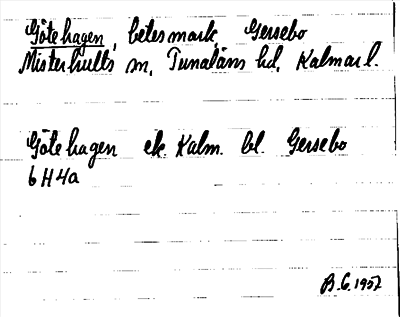 Götehagen, betesmark, Gersebo
Misterhults sn, Tunaläns hd, Kalmar l.
Götehagen ek. Kalm. bl. Gersebo
6 H 4a
B.G. 1957